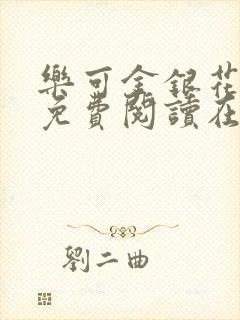 樂可金銀花
免費閱讀在
劉二曲